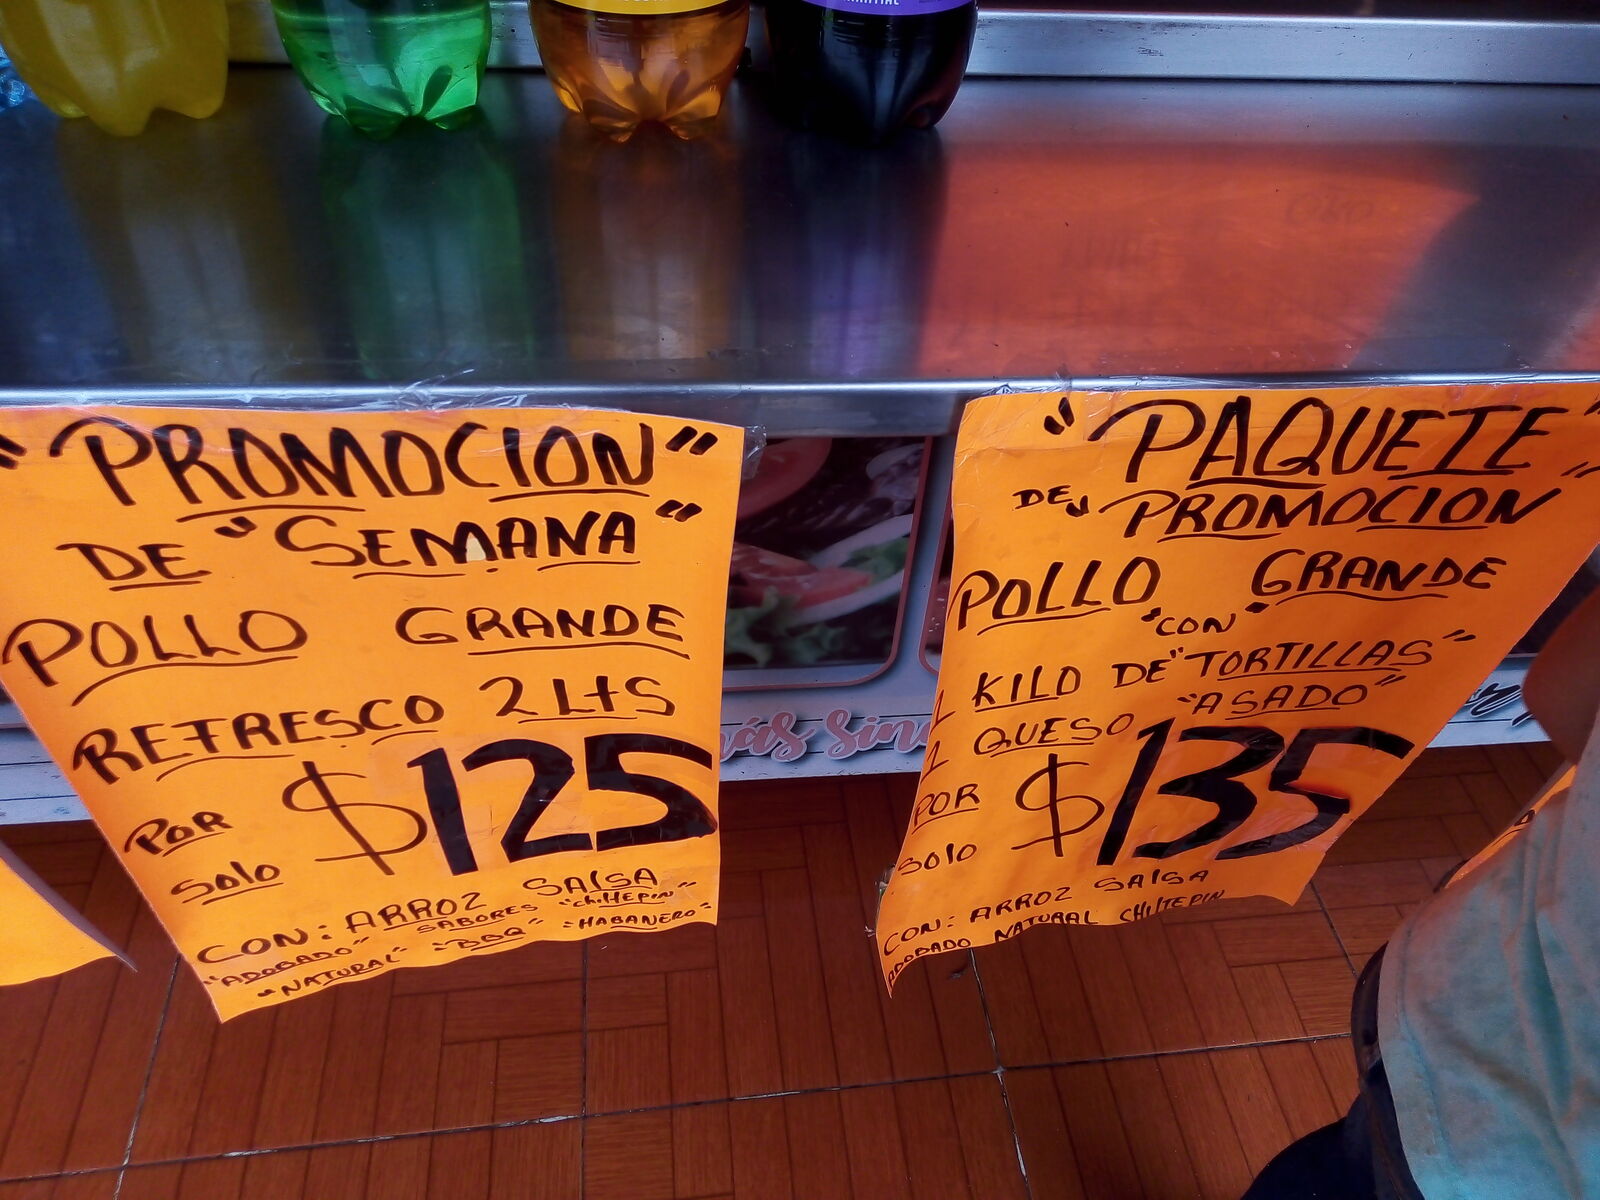 "PROMOCION"
DE "SEMANA"
POLLO GRANDE
REFRESCO 2 LtS
POR
Solo $125
CON: ARROZ SAlSA
"ADOBADO" SABORES "ChiltEPIN"
"NATURAL" "BBQ" "HABANERO"
"PAQUETE"
DE "PROMOCION"
POLLO GRANDE
"CON"
1 KILO DE "TORTILLAS"
1 QUESO "ASADO"
POR
Solo $135
CON: ARROZ SAlSA
ADOBADO NATURAL CHIlTEPIN
más Sin